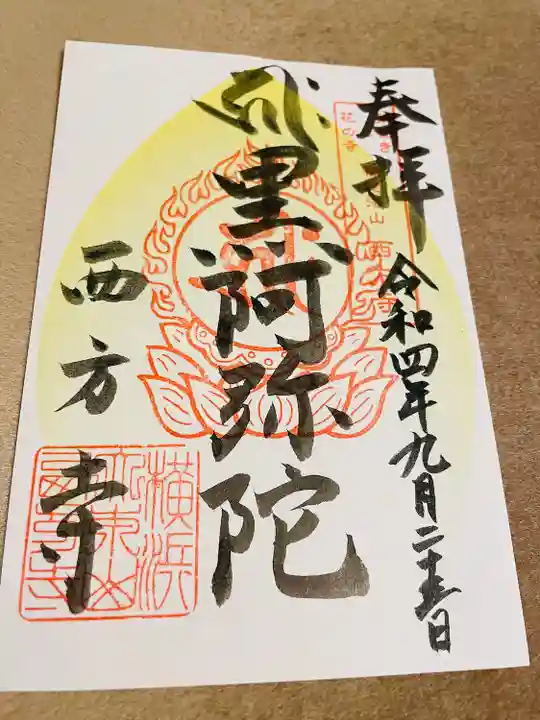 奉拝
令和四年九月二十五日
花の寺
西方寺
黒阿弥陀
西方寺
横浜